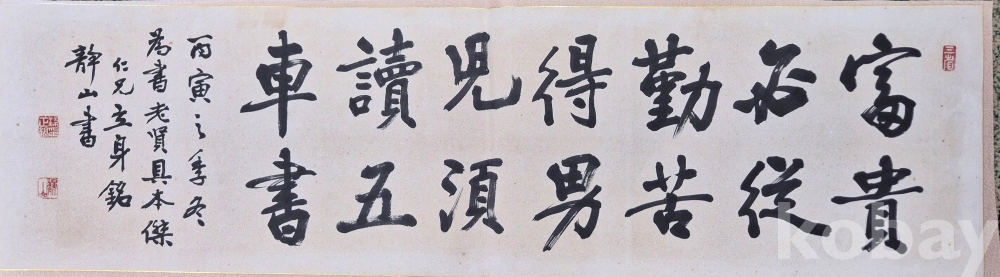 富貴
必從
勤苦
得男
兒須
讀五
車書
丙寅之季冬
為書老賢具本傑
仁兄立身銘
靜山書
kobay